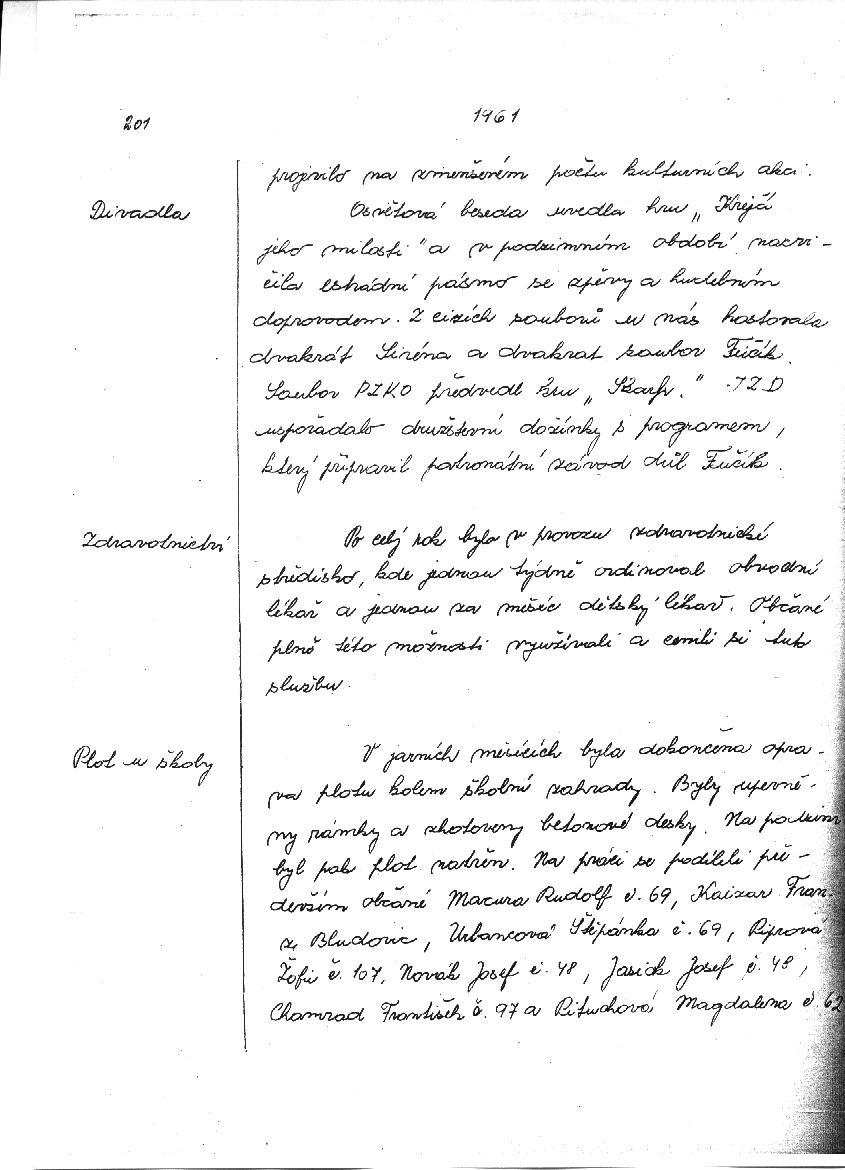 201
1961
projevilo na zmenšeném počtu kulturních akcí.
Divadla
Osvětová beseda uvedla hru „Krejčí
jeho milosti" a v podzimním období nacvi-
čila estrádní pásmo se zpěvy a hudebním
doprovodem. Z cizích souborů u nás hostovala
dvakrát Siréna a dvakrát soubor Fučík.
Soubor PZKO předvedl hru „Skarb." JZD
uspořádalo družstevní dožínky s programem,
který připravil patronátní závod důl Fučík.
Zdravotnictví
Po celý rok bylo v provozu zdravotnické
středisko, kde jednou týdně ordinoval obvodní
lékař a jednou za měsíc dětský lékař. Občané
plně této možnosti využívali a cenili si tuto
službu.
Plot u školy
V jarních měsících byla dokončena opra-
va plotu kolem školní zahrady. Byly upevně-
ny rámky a zhotoveny betonové desky. Na podzim
byl pak plot natřen. Na práci se podíleli pře-
devším občané Macura Rudolf č. 69, Kaizar Fran.
z Bludovic, Urbancová Štěpánka č. 69, Piprová
Žofie č. 107, Novák Josef č. 48, Jasiok Josef č. 48,
Chamrad František č. 97 a Pituchová Magdalena č. 62